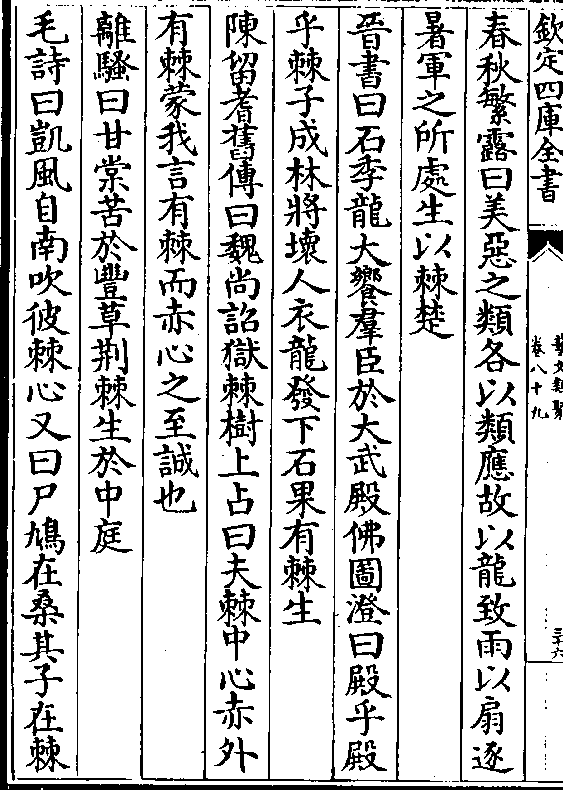 欽定四庫全書
藝文類聚
卷八十九
三十六
春秋繁露曰美惡之類各以類應故以龍致雨以扇逐
暑軍之所處生以棘楚
晉書曰石季龍大饗羣臣於大武殿佛圖澄曰殿乎殿
乎棘子成林將壞人衣龍發下石果有棘生
陳留耆舊傳曰魏尚詔獄棘樹上占曰夫棘中心赤外
有棘蒙我言有棘而赤心之至誠也
離騷曰甘棠苦於豐草荆棘生於中庭
毛詩曰凱風自南吹彼棘心又曰尸鳩在桑其子在棘